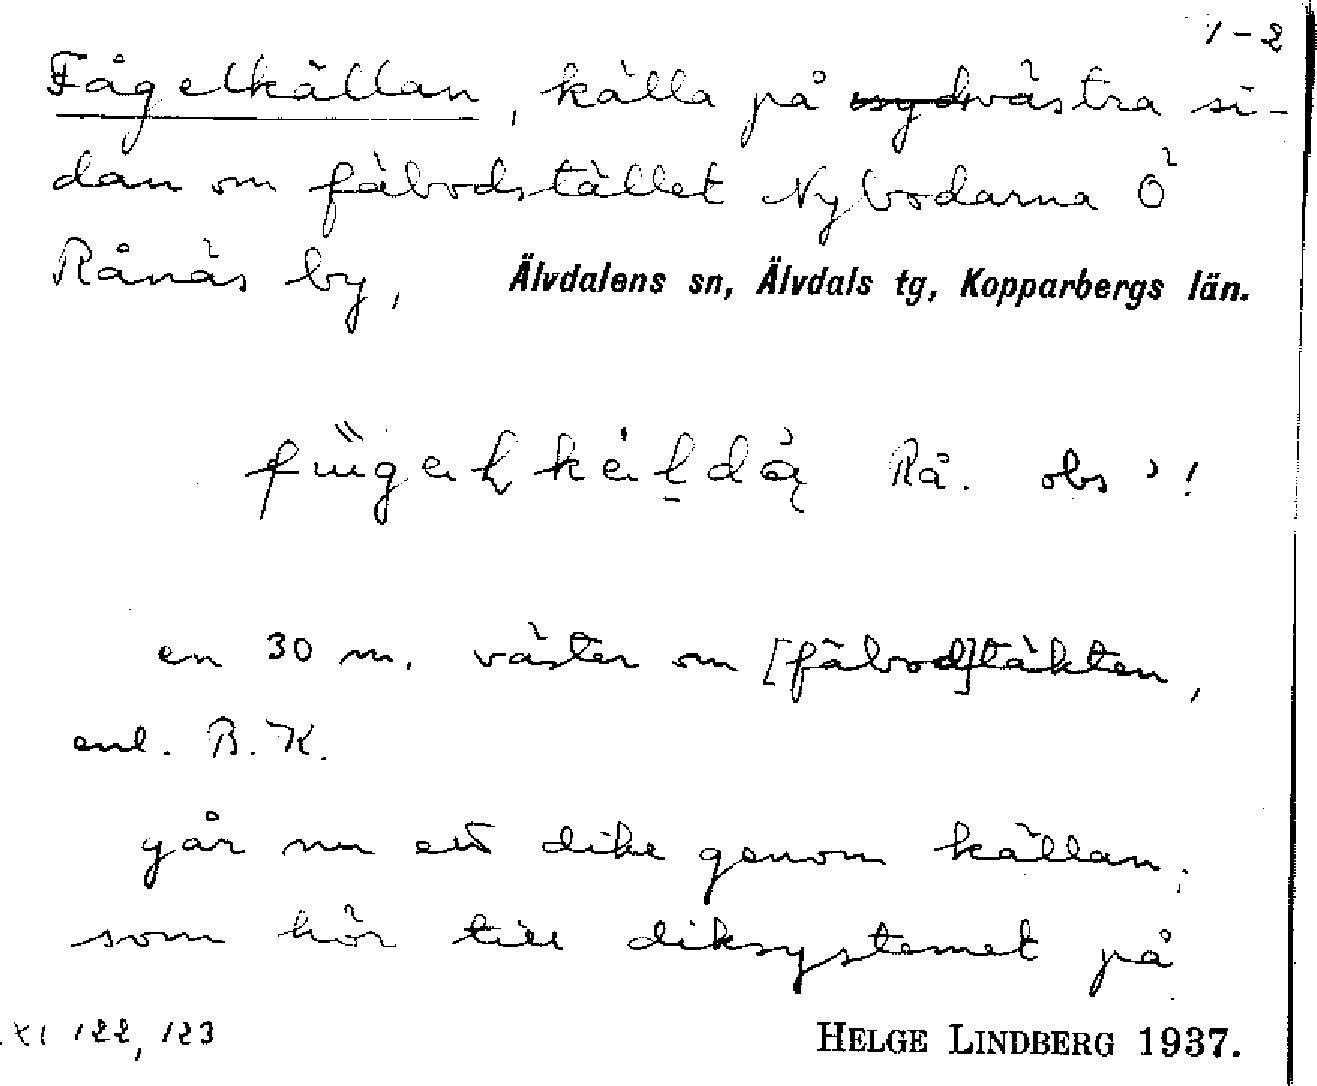 1-2
Fågelkällan, källa på västra si-
dan om fäbodstället Nybodarna Ö
Rånäs by, Älvdalens sn, Älvdals tg, Kopparbergs län.
Rå. obs !
en 30 m. väster om [fäbod]täkten,
enl. B. K.
går nu ett dike genom källan,
som hör till diksystemet på
XI 122, 123
HELGE LINDBERG 1937.